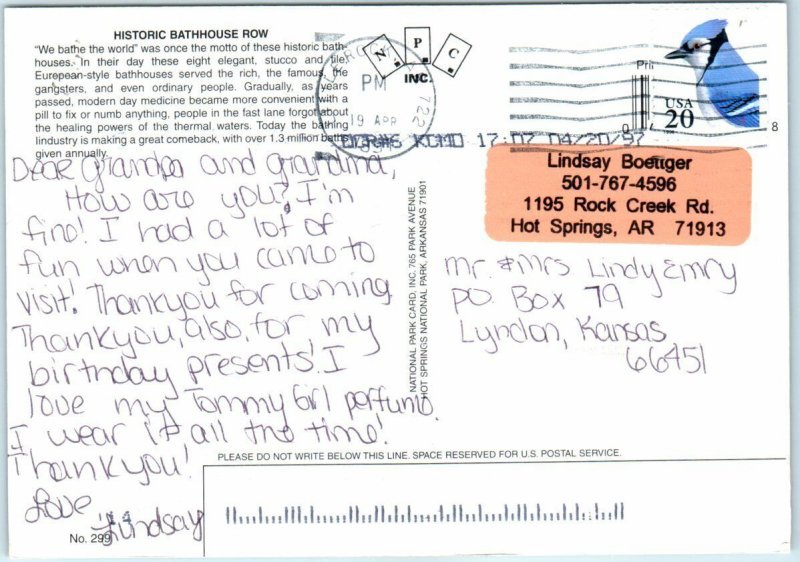 HISTORIC BATHHOUSE ROW
"We bathe the world" was once the motto of these historic bath-
houses. In their day these eight elegant, stucco and tile,
European-style bathhouses served the rich, the famous, the
gangsters, and even ordinary people. Gradually, as years
passed, modern day medicine became more convenient with a
pill to fix or numb anything, people in the fast lane forgot about
the healing powers of the thermal waters. Today the bathing
industry is making a great comeback, with over 1.3 million baths
given annually.
N. P. C.
INC.
PM
19 APR
722
KCMO 17:07 04/20/97
USA
20
8
Lindsay Boettger
501-767-4596
1195 Rock Creek Rd.
Hot Springs, AR 71913
Dear Grandpa and grandma,
How are you? I'm
fine! I had a lot of
fun when you came to
visit! Thankyou for coming
Thankyou, also, for my
birthday presents! I
love my Tommy Girl perfume.
I wear it all the time!
Thankyou!
Love
Lindsay
NATIONAL PARK CARD, INC. 765 PARK AVENUE
HOT SPRINGS NATIONAL PARK, ARKANSAS 71901
Mr. & Mrs Lindy Emry
PO Box 79
Lyndon, Kansas
66451
PLEASE DO NOT WRITE BELOW THIS LINE. SPACE RESERVED FOR U.S. POSTAL SERVICE.
No. 299